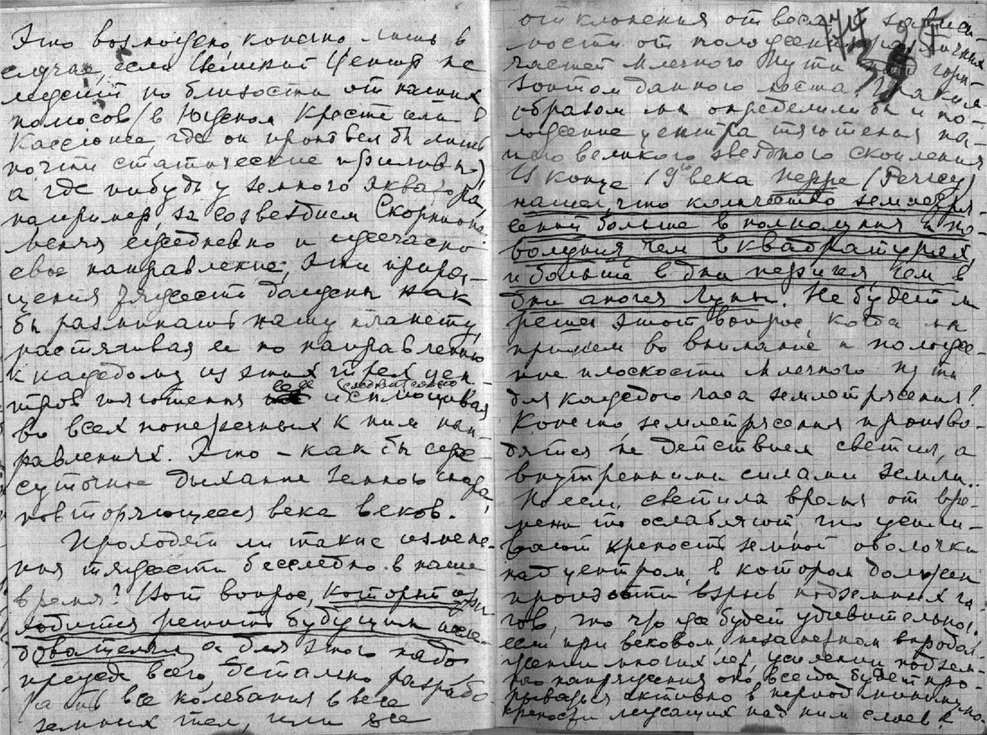 Это возможно, конечно лишь в
случае, если Великий Центр не
лежит по близости от наших
полюсов (в Южном Кресте или в
Кассиопее, где он произвел бы лишь
почти статические приливы),
а где нибудь у земного экватора,
например за созвездием Скорпиона.
Меняя ежедневно и ежечасно
свое направление, эти прира-
щения тяжести должны как
бы разминать нашу планету,
растягивая ее по направлению
к каждому из этих трех цен-
тров тяготения и сплющивая
во всех поперечных к ним нап-
равлениях. Это – как бы
суточное дыхание земного шара,
повторяющееся века веков.
Проходят ли такие измене-
ния тяжести бесследно в наше
время? Вот вопрос, который
решить будущим иссле-
дователям, а для этого надо
прежде всего детально разрабо-
тать все колебания в весе
земных тел, или все
отклонения от веса в зависи-
мости от положения различных
частей Млечного Пути над гори-
зонтом данного места. Таким
образом мы определили бы и по-
ложение центра тяготения на-
шего великого звездного скопления.
И конце 19 века Перре (Perrey)
нашел, что количество землетря-
сений больше в полнолуния и но-
волуния чем в квадратурах,
и больше в дни перигея, чем в
дни апогея Луны. Не будет ли
решен этот вопрос, когда мы
примем во внимание и положе-
ние плоскости Млечного пути
для каждого часа землетрясения?
Конечно землетрясения произво-
дятся не действием светил, а
внутренними силами Земли..
Но если светила время от вре-
мени то ослабляют, то усили-
вают крепость земной оболочки
над центром, в котором должен
произойти взрыв подземных га-
зов, то что же будет удивительного,
если при вековом, незамерном в продол-
жении многих лет, усилении подзем-
ного напряжения оно всегда будет про-
рываться активно в период минимума
крепости лежащих над ним слоев?